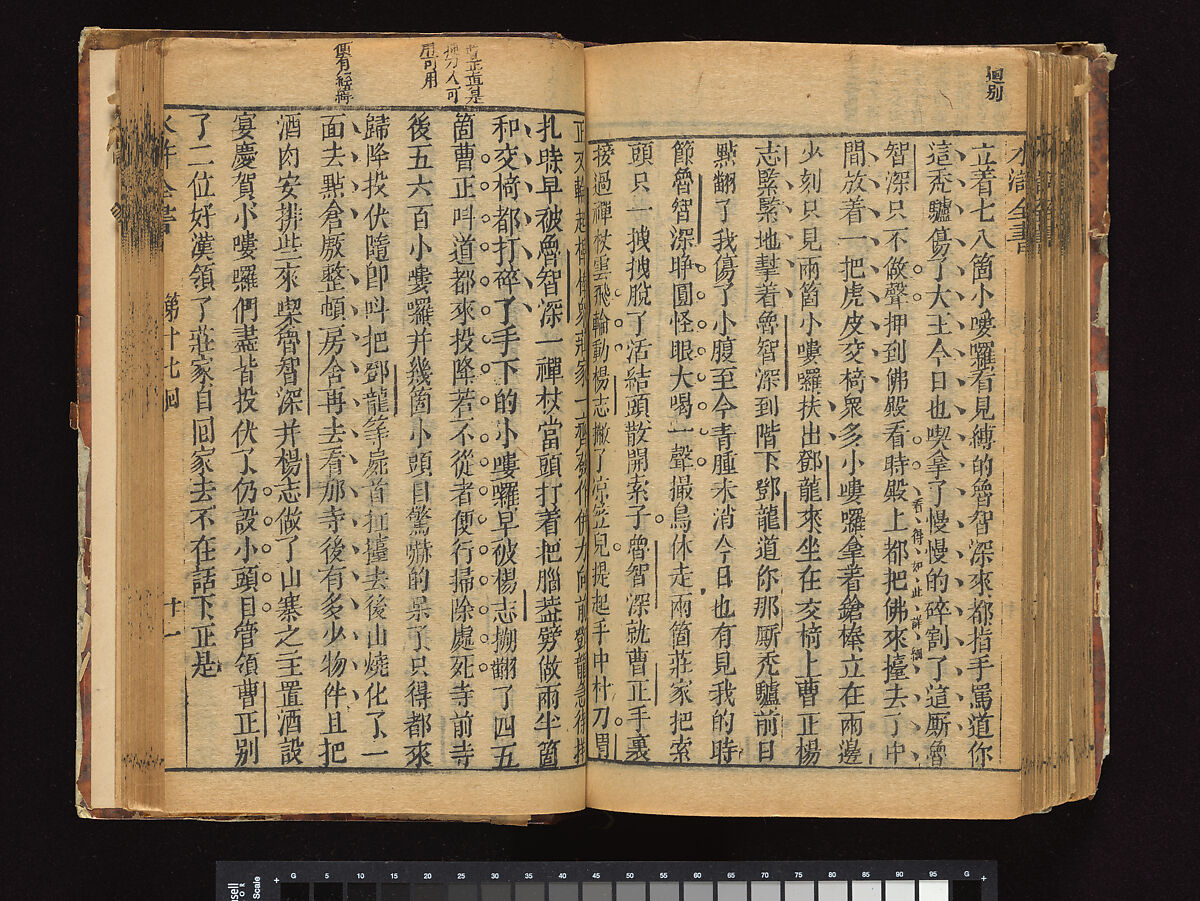 迴别
水滸全書
立着七八箇小嘍囉看見縛的魯智深來都指手罵道你
這禿驢傷了大王今日也喫拿了慢慢的碎割了這厮魯
智深只不做聲押到佛殿看時殿上都把佛來擡去了中
看得如此詳細
間放着一把虎皮交椅衆多小嘍囉拿着鎗棒立在兩邊
少刻只見兩箇小嘍囉扶出鄧龍來坐在交椅上曹正楊
志緊緊地幇着魯智深到階下鄧龍道你那厮禿驢前日
點翻了我傷了小腹至今青腫未消今日也有見我的時
節魯智深睁圓怪眼大喝一聲撮鳥休走兩箇莊家把索
頭只一拽拽脫了活結頭散開索子魯智深就曹正手裏
接過禪杖雲飛輪動楊志撇了凉笠兒提起手中朴刀曹
正又輪起桿棒衆莊家一齊發作併力向前鄧龍急待掙
曹正真是
可用
便有經濟
扎時早被魯智深一禪杖當頭打着把腦蓋劈做兩半箇
和交椅都打碎了手下的小嘍囉早被楊志搠翻了四五
箇曹正呌道都來投降若不從者便行掃除處死寺前寺
後五六百小嘍囉并幾箇小頭目驚嚇的呆了只得都來
歸降投伏隨卽呌把鄧龍等屍首扛擡去後山燒化了一
面去點倉厫整頓房舍再去看那寺後有多少物件且把
酒肉安排些來喫魯智深并楊志做了山寨之主置酒設
宴慶賀小嘍囉們盡皆投伏了仍設小頭目管領曹正别
了二位好漢領了莊家自回家去不在話下正是
水滸全書
第十七回
十一